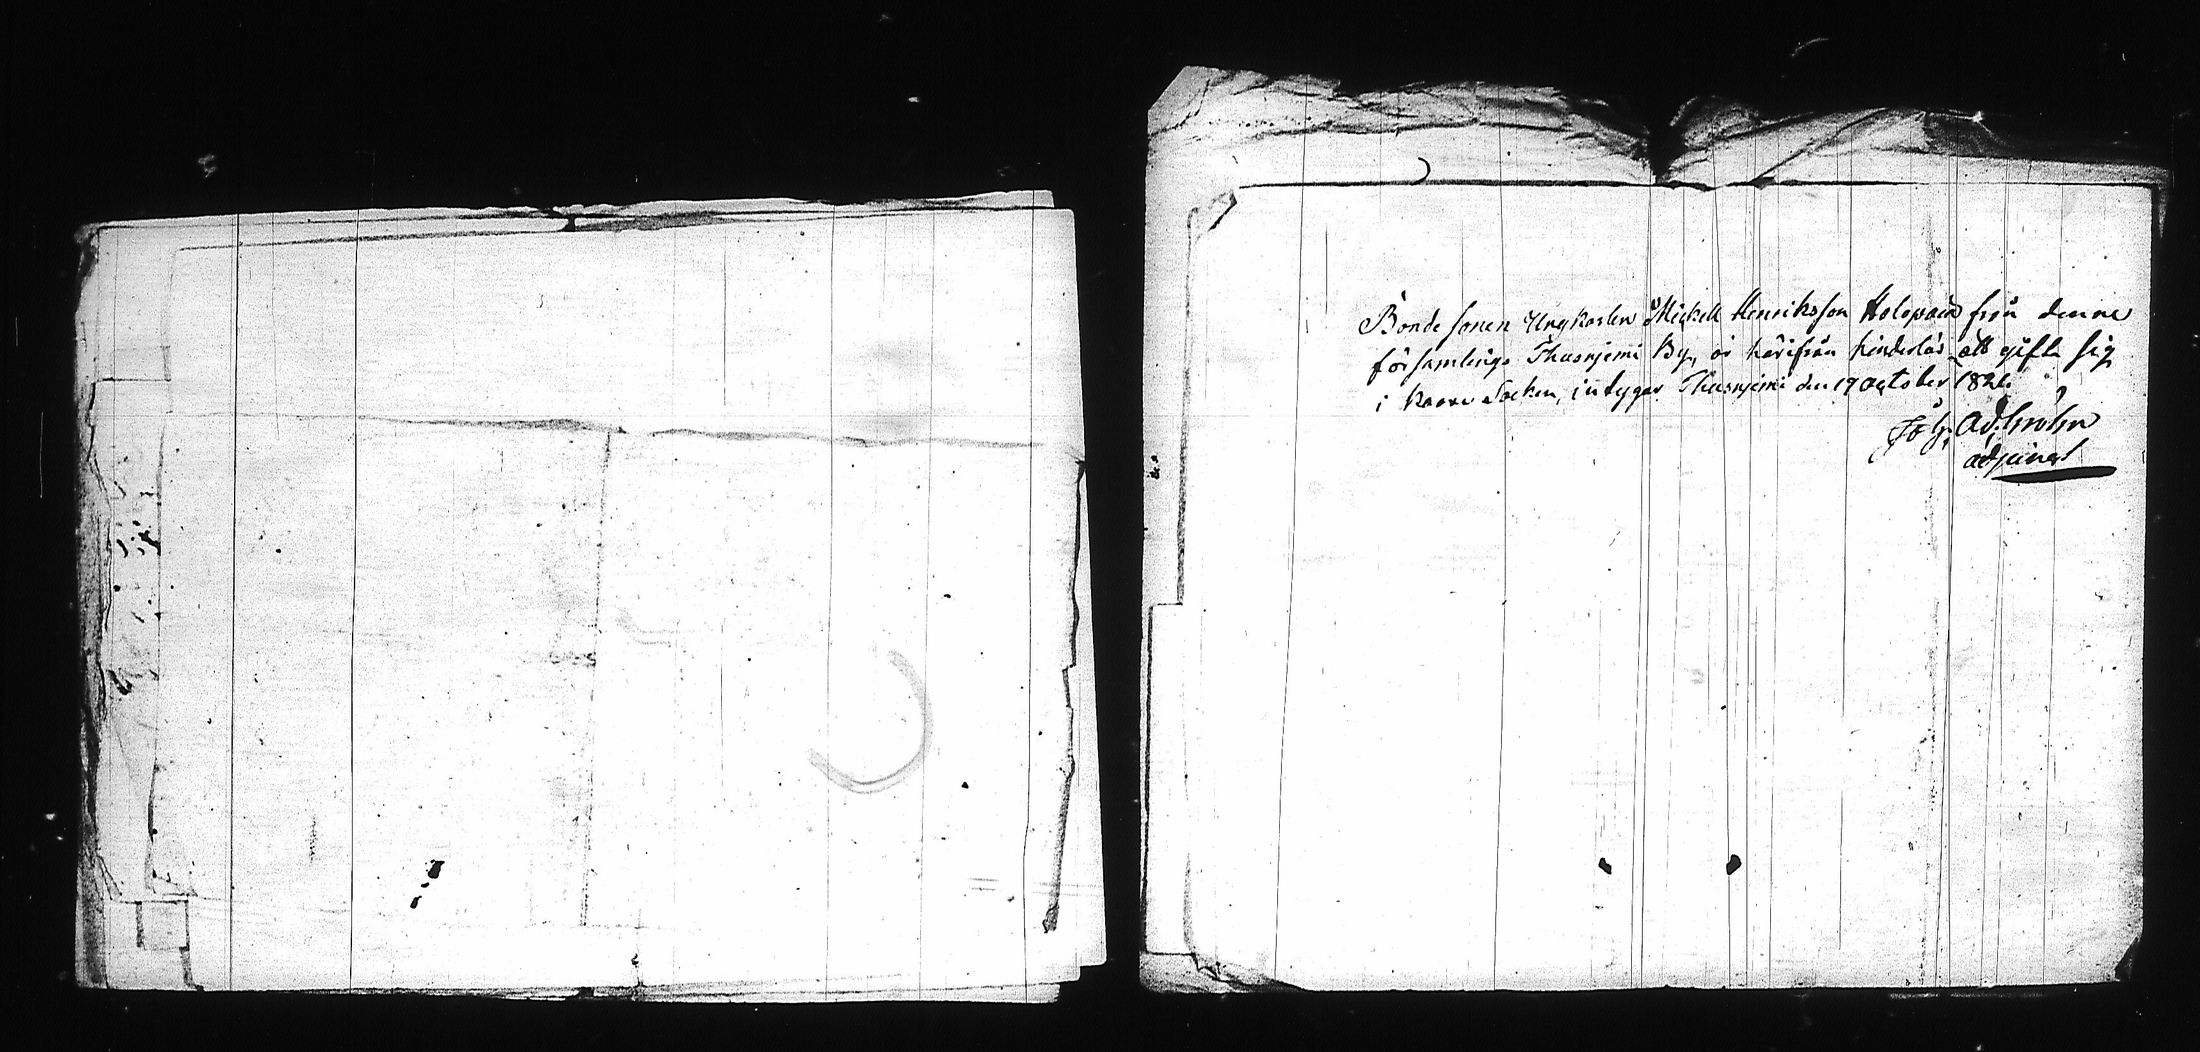 Bonde sonen Ungkarlen Mickell Henriksson Holopain från denne
församlings Thusnjemi By, är härifrån hinderlös att gifta sig
i Socken, intygar Thusnjemi den 19 October
adjunct